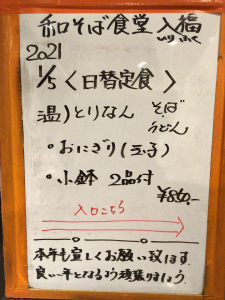 和そば食堂 入福
いりふく
2021
1/5 <日替定食>
温)とりなん そば
うどん
・おにぎり(玉子)
・小鉢 2品付
¥860,-
入口こちら
本年も宜しくお願い致します
良い一年となるよう頑張りましょう